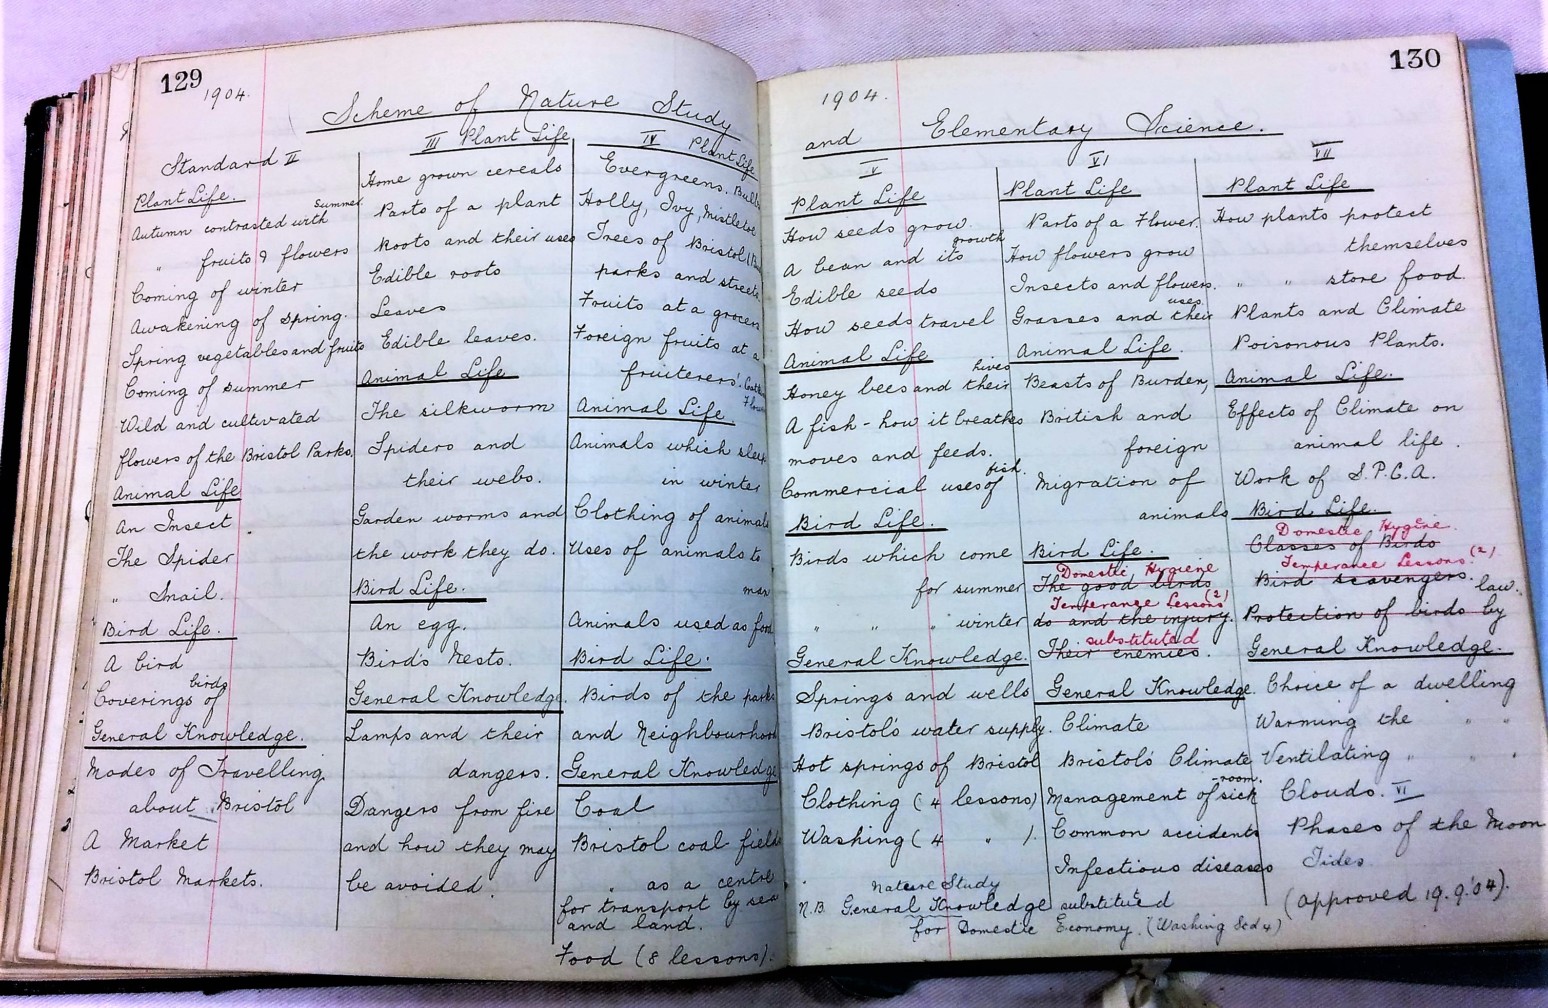 129
1904.
Scheme of Nature Study
Standard II
Plant Life.
Autumn contrasted with Summer
" fruits & flowers
Coming of winter
Awakening of Spring.
Spring vegetables and fruits
Coming of summer
Wild and cultivated
flowers of the Bristol Parks.
Animal Life
An Insect
The Spider
" Snail.
Bird Life.
A bird
Coverings of birds
General Knowledge.
Modes of Travelling
about Bristol
A Market
Bristol Markets.
III Plant Life
Home grown cereals
Parts of a plant
Roots and their uses
Edible roots
Leaves
Edible leaves.
Animal Life
The silkworm
Spiders and
their webs.
Garden worms and
the work they do.
Bird Life.
An egg.
Bird's Nests.
General Knowledge.
Lamps and their
dangers.
Dangers from fire
and how they may
be avoided.
IV Plant Life
Evergreens.
Holly, Ivy, Mistletoe
Trees of Bristol
parks and streets.
Fruits at a grocers
Foreign fruits at a
fruiterers'.
Animal Life
Animals which sleep
in winter
Clothing of animals
Uses of animals to
man
Animals used as food
Bird Life.
Birds of the parks
and Neighbourhood
General Knowledge
Coal
Bristol coal fields
" as a centre
for transport by sea
and land.
Food (8 lessons).
130
1904.
and Elementary Science.
V
Plant Life
How seeds grow
A bean and its growth
Edible seeds
How seeds travel
Animal Life
Honey bees and their hives
A fish - how it breathes
moves and feeds.
Commercial uses of fish.
Bird Life.
Birds which come
for summer
" " " winter
General Knowledge.
Springs and wells
Bristol's water supply.
Hot springs of Bristol
Clothing (4 lessons)
Washing (4 " ).
VI
Plant Life
Parts of a Flower.
How flowers grow
Insects and flowers.
Grasses and their uses
Animal Life.
Beasts of Burden,
British and
foreign
Migration of
animals
Bird Life.
Domestic Hygiene
The good birds
Temperance Lessons (2)
do and the injury.
substituted
Their enemies.
General Knowledge.
Climate
Bristol's Climate
Management of sick-room.
Common accidents
Infectious diseases
VII
Plant Life
How plants protect
themselves
" " store food.
Plants and Climate
Poisonous Plants.
Animal Life.
Effects of Climate on
animal life.
Work of S.P.C.A.
Bird Life.
Domestic Hygine.
Classes of Birds
Temperance Lessons. (2)
Bird scavengers.
Protection of birds by law.
General Knowledge.
Choice of a dwelling
Warming the " "
Ventilating " "
Clouds. VI
Phases of the Moon
Tides.
(approved 19.9.'04).
Nature Study
N.B. General Knowledge substituted
for Domestic Economy. (Washing Std 4)